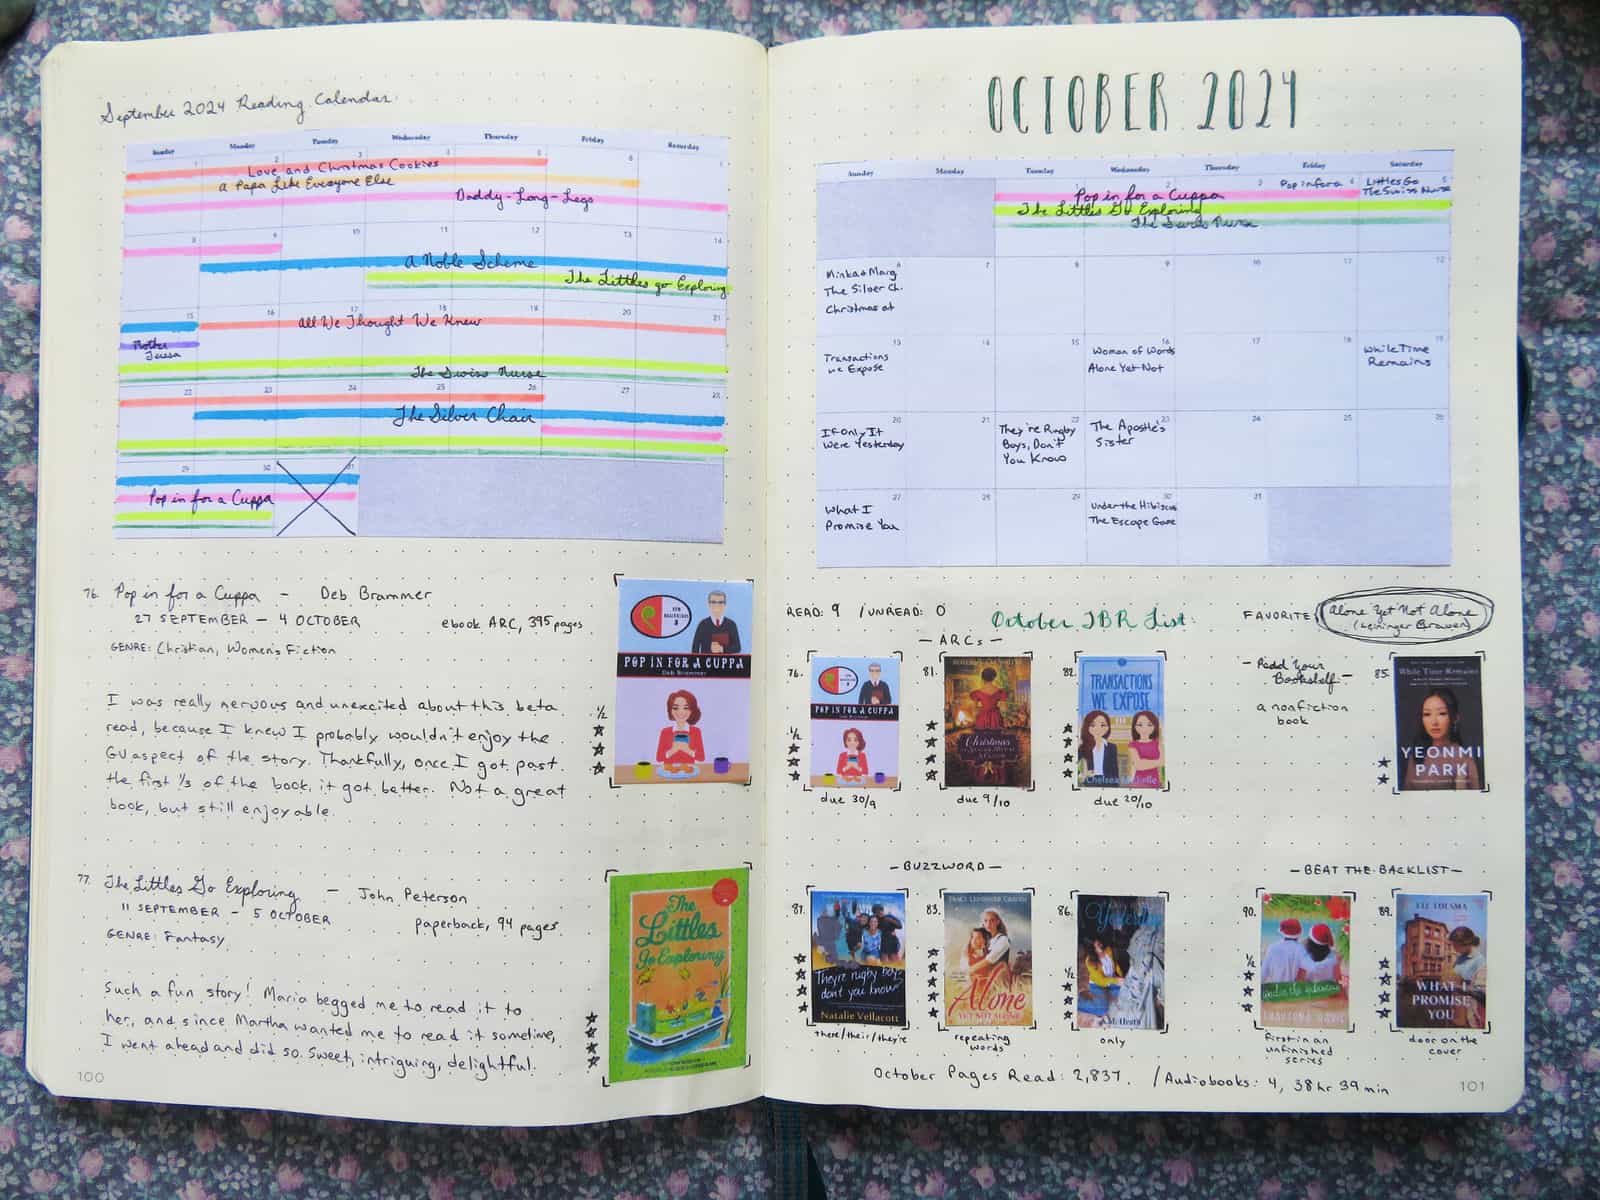 September 2024 Reading Calendar
Sunday Monday Tuesday Wednesday Thursday Friday Saturday
1 2 3 4 5 6 7
Love and Christmas Cookies
A Papa Like Everyone Else
Daddy-Long-Legs
8 9 10 11 12 13 14
A Noble Scheme
The Littles go Exploring
15 16 17 18 19 20 21
All We Thought We Knew
Mother
Teresa
The Swiss Nurse
22 23 24 25 26 27 28
The Silver Chair
29 30 31
Pop in for a Cuppa
76. Pop in for a Cuppa - Deb Brammer
27 SEPTEMBER - 4 OCTOBER ebook ARC, 395 pages
GENRE: Christian, Women's Fiction
I was really nervous and unexcited about this beta
read, because I knew I probably wouldn't enjoy the
GV aspect of the story. Thankfully, once I got past
the first 1/3 of the book, it got better. Not a great
book, but still enjoyable.
1/2
POP IN FOR A CUPPA
Deb Brammer
77. The Littles Go Exploring - John Peterson
11 SEPTEMBER - 5 OCTOBER paperback, 94 pages
GENRE: Fantasy
Such a fun story! Maria begged me to read it to
her, and since Martha wanted me to read it sometime,
I went ahead and did so. Sweet, intriguing, delightful.
The
Littles
go Exploring
100
OCTOBER 2024
Sunday Monday Tuesday Wednesday Thursday Friday Saturday
1 2 3 4 5
Pop in for a
Littles Go
The Swiss Nurse
Pop in for a Cuppa
The Littles Go Exploring
The Swiss Nurse
6 7 8 9 10 11 12
Minka + Marg
The Silver Ch.
Christmas at
13 14 15 16 17 18 19
Transactions
we Expose
Woman of Words
Alone Yet Not
While Time
Remains
20 21 22 23 24 25 26
If Only It
Were Yesterday
They're Rugby
Boys, Don't
You Know
The Apostle's
Sister
27 28 29 30 31
What I
Promise You
Under the Hibiscus
The Escape Game
READ: 9 / UNREAD: 0 October TBR List: FAVORITE: Alone Yet Not Alone
(Leininger Craven)
- ARCs -
76.
1/2
POP IN FOR A CUPPA
due 30/9
81.
Christmas
due 9/10
82.
TRANSACTIONS
WE EXPOSE
Chelsea Michelle
due 20/10
- Padd Your
Bookshelf -
a nonfiction
book
85.
While Time Remains
YEONMI
PARK
- BUZZWORD -
87.
They're rugby boys,
don't you know
Natalie Vellacott
there/their/they're
83.
TRACY LEININGER CRAVEN
Alone
YET NOT ALONE
repeating
words
86.
1/2
Yesterday
A.M. Heath
only
- BEAT THE BACKLIST -
90.
1/2
under the hibiscus
first in an
unfinished
series
89.
WHAT I
PROMISE
YOU
door on the
cover
October Pages Read: 2,837. / Audiobooks: 4, 38 hr 39 min
101